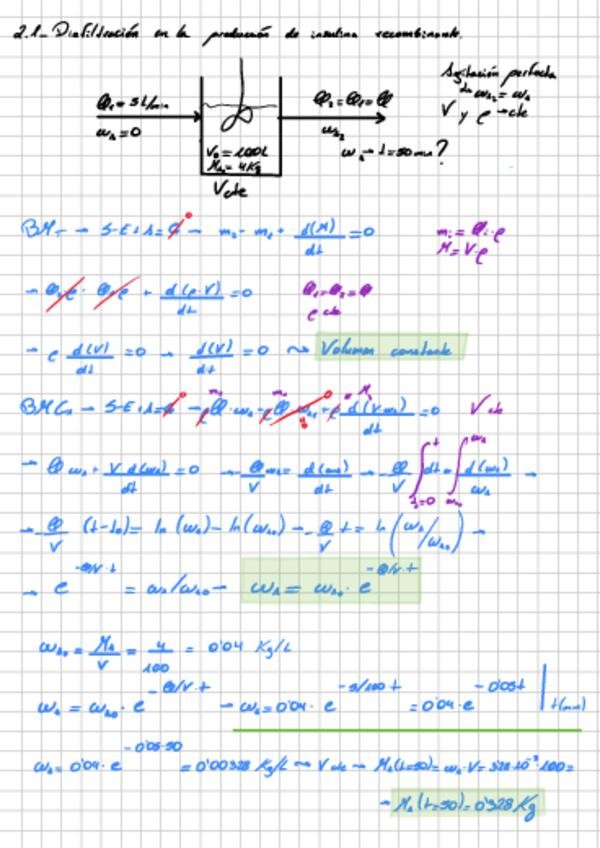 2.1_ Diafiltración en la producción de insulina recombinante.
Q₁ = 5 L/min
ω_A = 0
V₀ = 100L
M_A₀ = 4 Kg
V cte
Q₂ = Q₁ = Q
ω_A₂
ω_A → t = 50 min?
Agitación perfecta
ω_A₂ = ω_A
V y ρ → cte
BM_T → S-E+A=0 → m₂ - m₁ + d(M)/dt = 0
m_i = Q_i·ρ
M = V·ρ
→ Q₂ρ - Q₁ρ + d(ρ·V)/dt = 0
Q₁=Q₂=Q
ρ cte
→ ρ d(V)/dt = 0 → d(V)/dt = 0 ⇝ Volumen constante
BMC_A → S-E+A=0 → ρQ·ω_A - ρQω_A₁ + ρ d(Vω_A)/dt = 0 V cte
→ Qω_A + V d(ω_A)/dt = 0 → -Q/V ω_A = d(ω_A)/dt → -Q/V ∫_{t₀=0}^{t} dt = ∫_{ω_A₀}^{ω_A} d(ω_A)/ω_A →
→ -Q/V (t-t₀) = ln(ω_A) - ln(ω_A₀) → -Q/V t = ln(ω_A/ω_A₀) →
→ e^{-Q/V·t} = ω_A/ω_A₀ → ω_A = ω_A₀·e^{-Q/V·t}
ω_A₀ = M_A/V = 4/100 = 0'04 Kg/L
ω_A = ω_A₀·e^{-Q/V·t} → ω_A = 0'04·e^{-5/100 t} = 0'04·e^{-0'05t} | t(min)
ω_A = 0'04·e^{-0'05·50} = 0'00328 Kg/L ⇝ V cte → M_A(t=50) = ω_A·V = 3'28·10⁻³·100 =
→ M_A(t=50) = 0'328 Kg